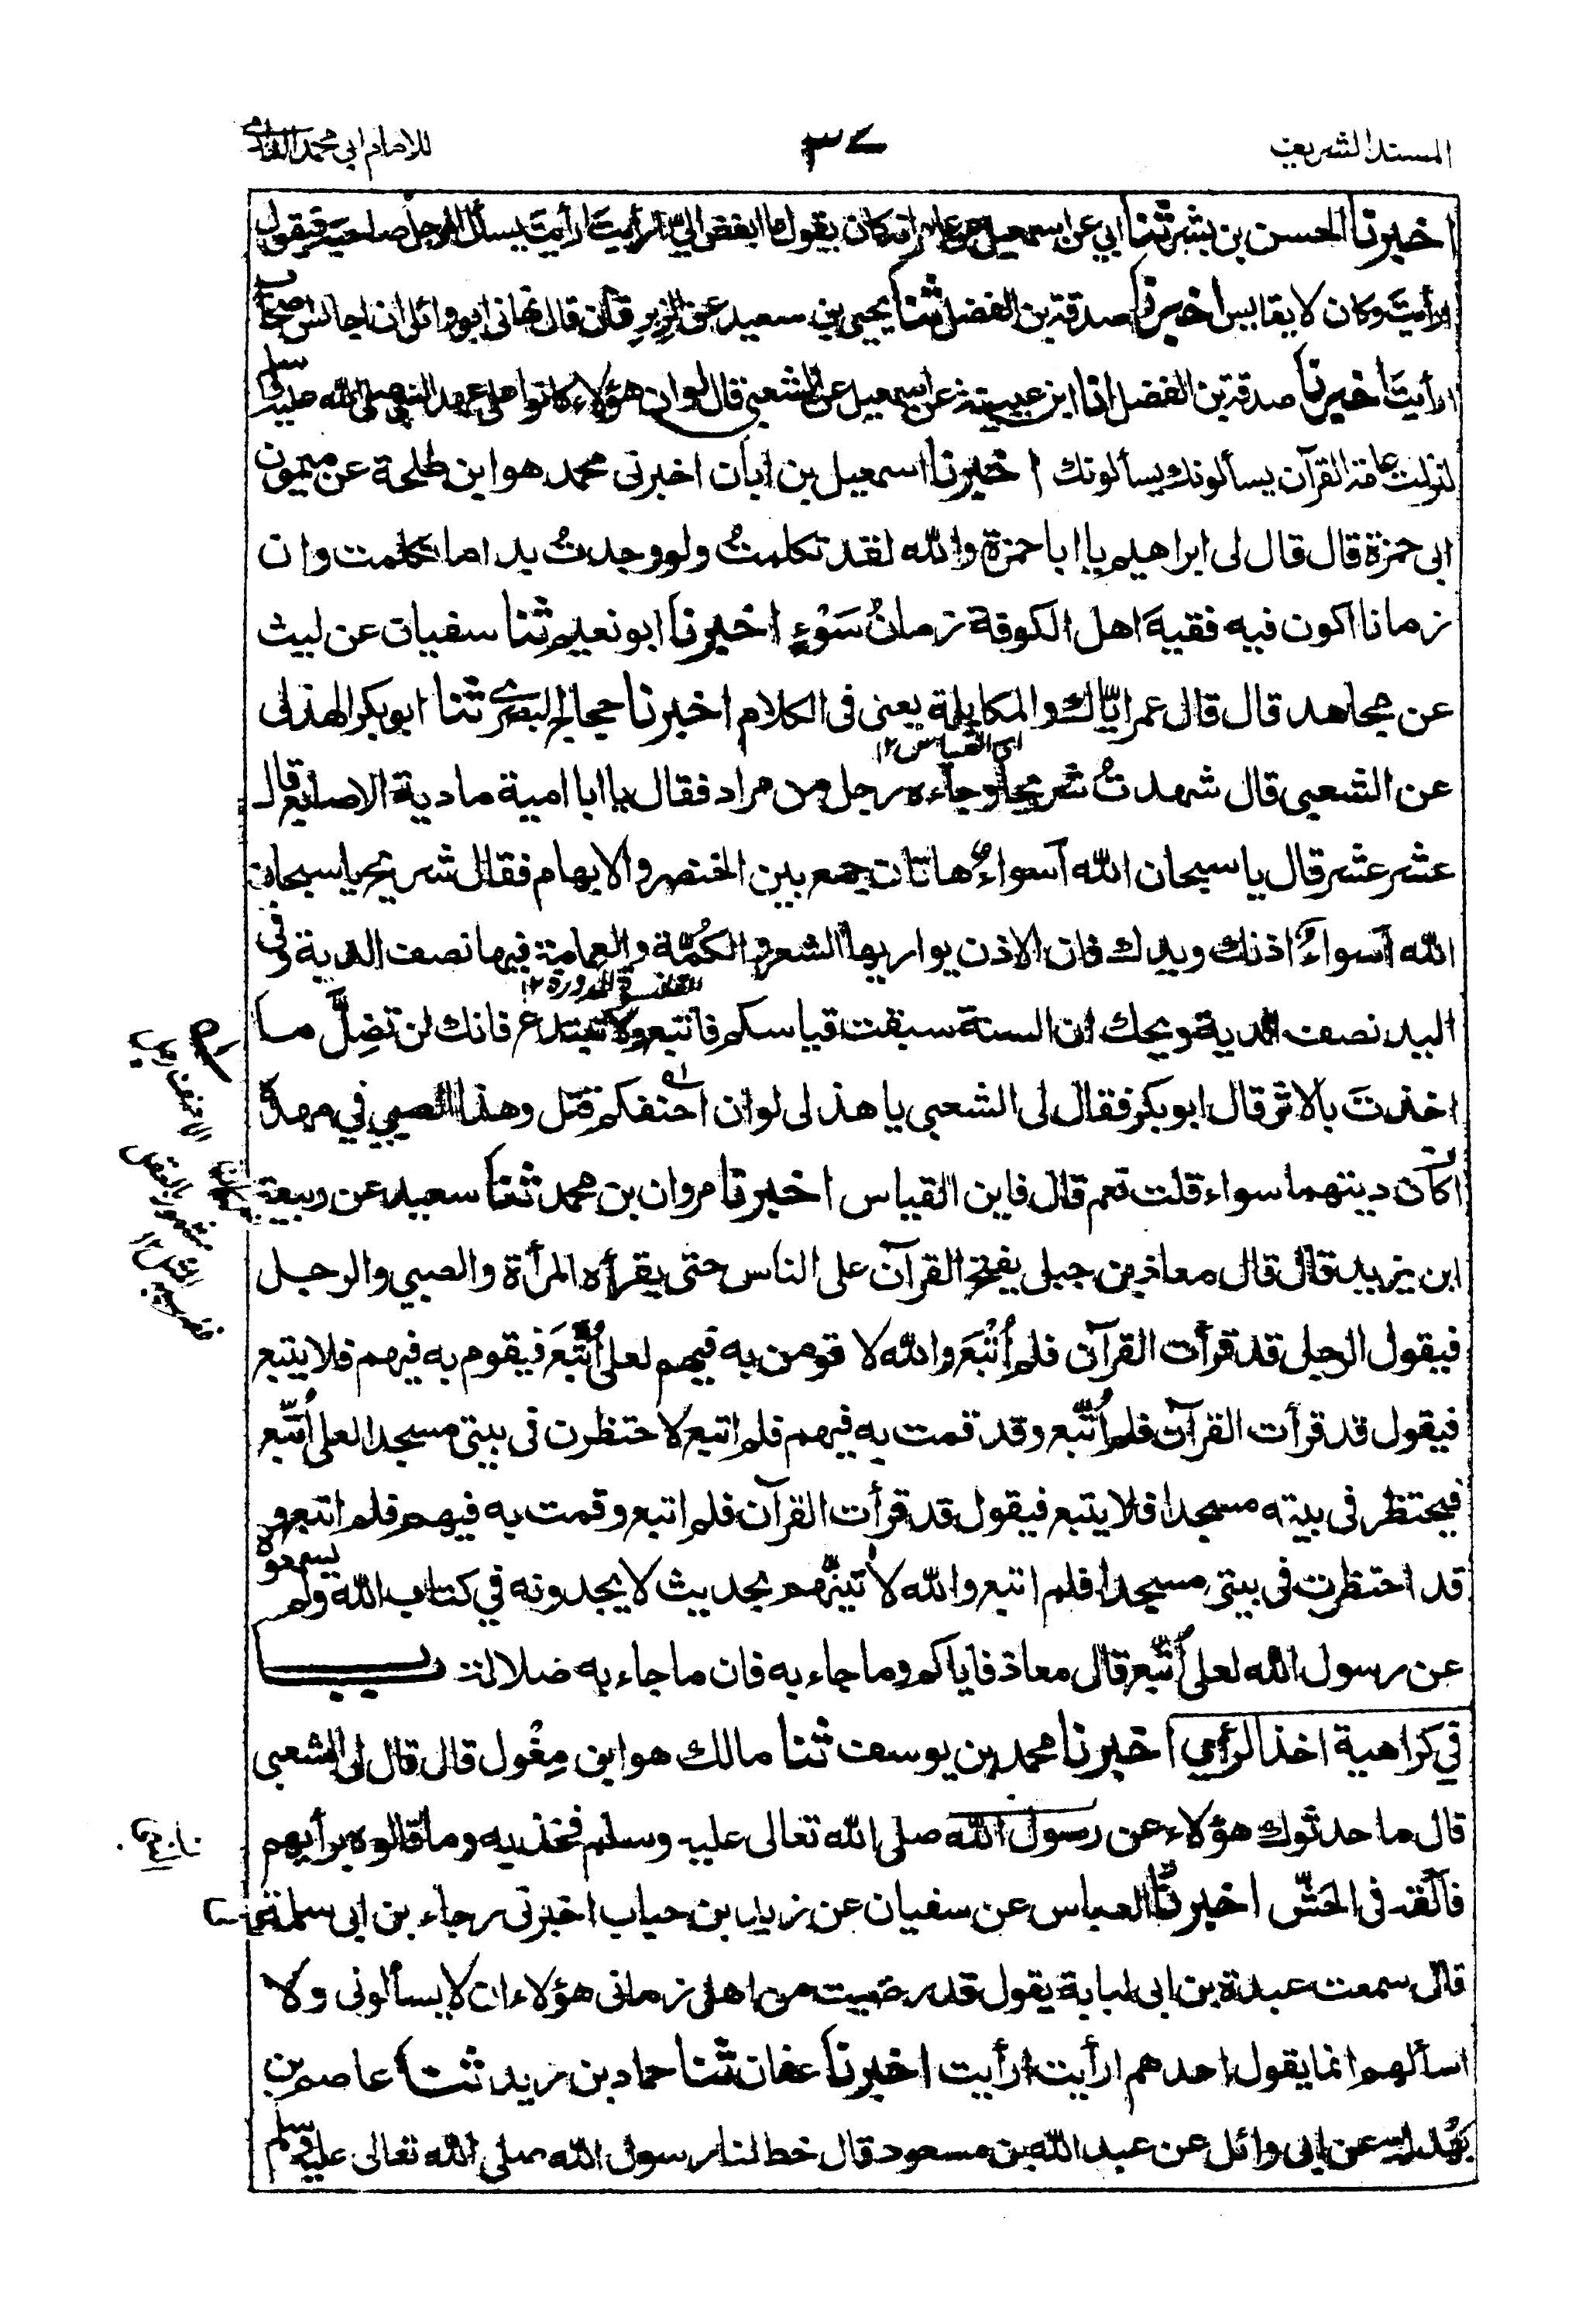 المسند الشريف
٣٧
للامام ابي محمد الدارمي
اخبرنا الحسن بن بشر ثنا ابي عن اسمعيل عن عامر انه كان يقول ما ابغض الي أرأيت أرأيت يسأل الرجل صاحبه فيقول
ارأيت وكان لا يقايس اخبرنا صدقة بن الفضل ثنا يحيى بن سعيد عن الزبرقان قال نهاني ابو وائل ان اجالس اصحاب
ارأيت اخبرنا صدقة بن الفضل انا ابن عيينة عن اسمعيل عن الشعبي قال لو ان هؤلاء كانوا على عهد النبي صلى الله عليه وسلم
لنزلت عامة القرآن يسألونك يسألونك اخبرنا اسمعيل بن ابان اخبرني محمد هو ابن طلحة عن ميمون
ابي حمزة قال قال لي ابراهيم يا ابا حمزة والله لقد تكلمتُ ولو وجدتُ بدا ما تكلمت وان
زمانا اكون فيه فقيهَ اهل الكوفة زمانُ سَوْءٍ اخبرنا ابو نعيم ثنا سفيان عن ليث
عن مجاهد قال قال عمر ايّاك والمكايلة يعنى فى الكلام اخبرنا حجاج البصرى ثنا ابو بكر الهذلى
اى القياس ١٢
عن الشعبى قال شهدتُ شريحا وجاءه رجل من مراد فقال يا ابا امية ما دية الاصابع قال
عشر عشر قال يا سبحان الله أسواءٌ هاتان جمع بين الخنصر والابهام فقال شريح يا سبحان
الله أسواءٌ اذنك ويدك فان الاذن يواريها الشعر والكُمّة والعمامة فيها نصف الدية وفى
القلنسوة المدورة ١٢
اليد نصف الدية ويحك ان السنة سبقت قياسكم فاتبع ولا تبتدع فانك لن تضِلَّ ما
اخذتَ بالاثر قال ابو بكر فقال لى الشعبى يا هذلى لو ان احنفكم قتل وهذا الصبي في مهده
اكان ديتهما سواء قلت نعم قال فاين القياس اخبرنا مروان بن محمد ثنا سعيد عن ربيعة
ابن يزيد قال قال معاذ بن جبل يفتح القرآن على الناس حتى يقرأه المرأة والصبي والرجل
فيقول الرجل قد قرأت القرآن فلم أُتّبَع والله لا قومن به فيهم لعلى أُتّبَع فيقوم به فيهم فلا يتبع
فيقول قد قرأت القرآن فلم أُتّبع وقد قمت به فيهم فلم اتبع لاحتظرن فى بيتى مسجدا لعلى أُتّبع
فيحتظر فى بيته مسجدا فلا يتبع فيقول قد قرأت القرآن فلم اتبع وقمت به فيهم فلم اتبع و
قد احتظرت فى بيتى مسجدا فلم اتبع والله لآتينّهم بحديث لا يجدونه في كتاب الله ولم يسمعوه
عن رسول الله لعلى أُتّبع قال معاذ فاياكم وما جاء به فان ما جاء به ضلالة باب
في كراهية اخذ الرأي اخبرنا محمد بن يوسف ثنا مالك هو ابن مِغْول قال قال لى الشعبى
قال ما حدثوك هؤلاء عن رسول الله صلى الله تعالى عليه وسلم فخذ به وما قالوه برأيهم
فألقه فى الحَشّ اخبرنا العباس عن سفيان عن زيد بن حباب اخبرنى رجاء بن ابى سلمة
قال سمعت عبدة بن ابى لبابة يقول قد رضيت من اهل زمانى هؤلاء ان لا يسألونى ولا
اسألهم انما يقول احدهم ارأيت ارأيت اخبرنا عفان ثنا حماد بن زيد ثنا عاصم بن
بهدلة عن ابى وائل عن عبد الله بن مسعود قال خط لنا رسول الله صلى الله تعالى عليه وسلم